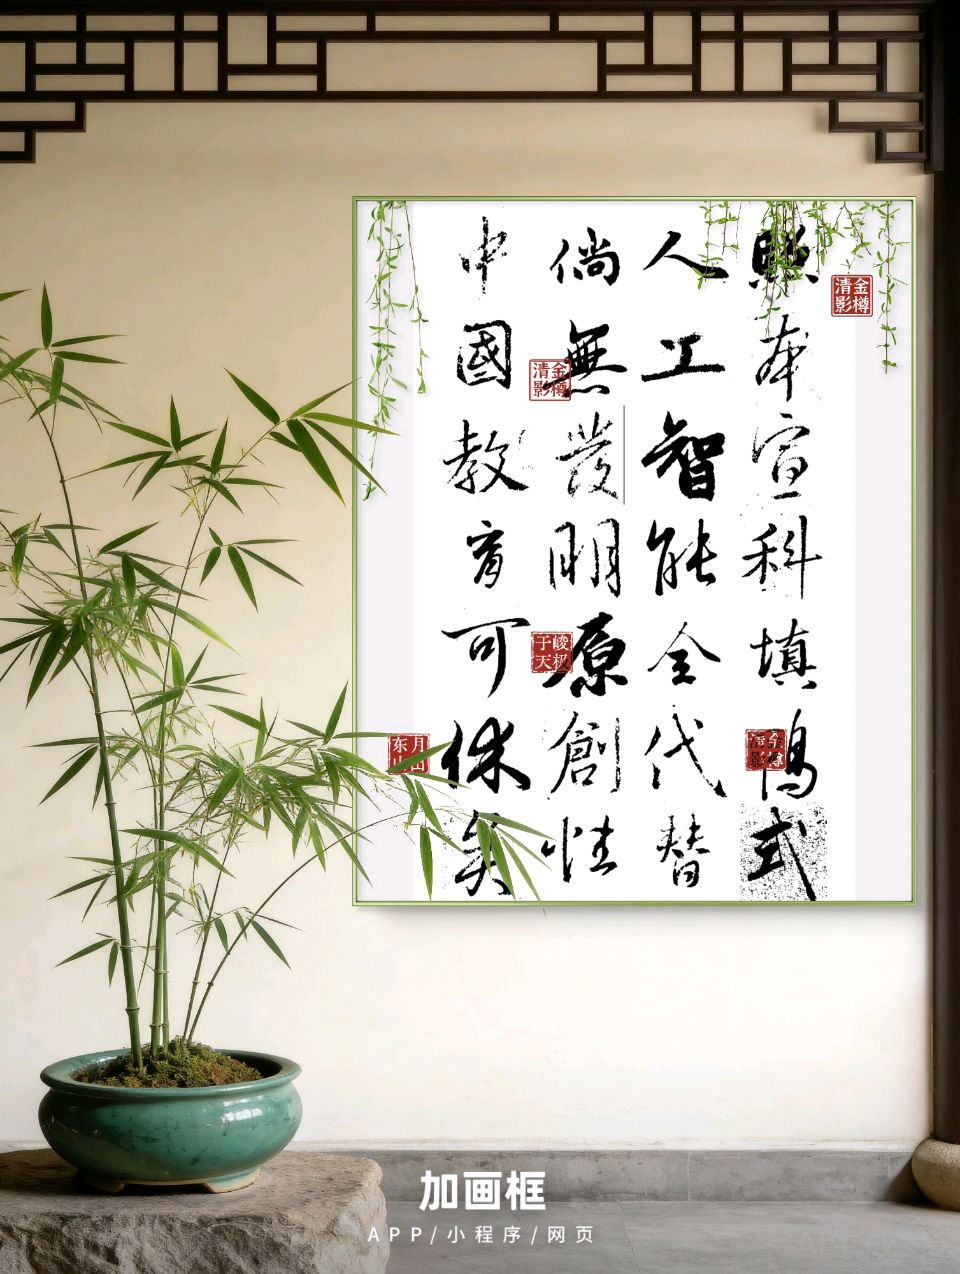 照本宣科填鸭式
人工智能全代替
倘無發明原創性
中國教育可休矣
金樽清影
金樽清影
峻极于天
金樽清影
东山月出
加画框
APP/小程序/网页